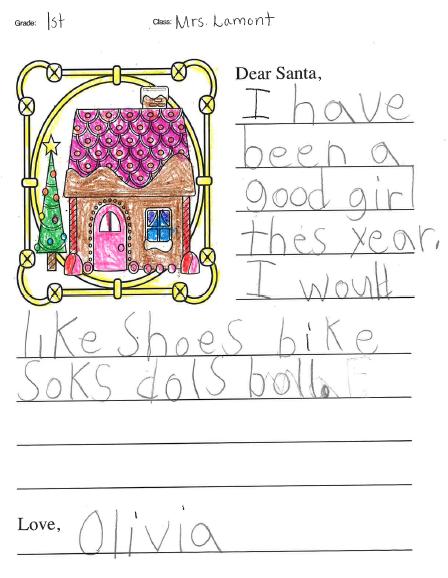 Grade: 1st Class: Mrs. Lamont
Dear Santa,
I have
been a
good girl
thes xear.
I would
like Shoes bike
Soks dols ball.
Love, Olivia